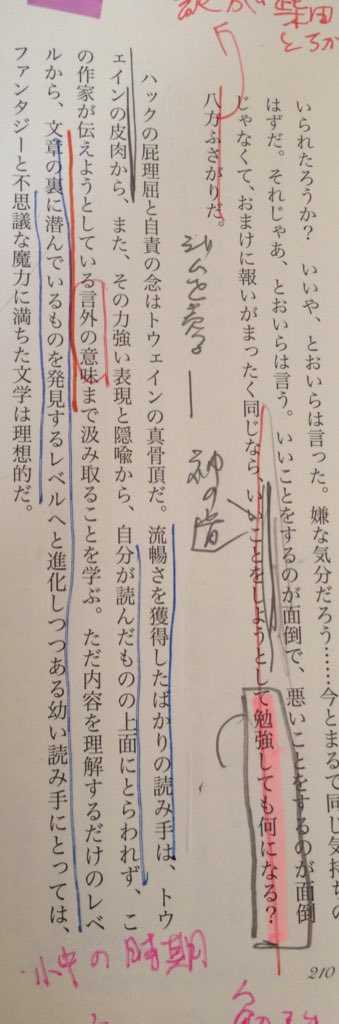 柴田
いられたろうか？　いいや、とおいらは言った。嫌な気分だろう……今とまるで同じ気持ちの
はずだ。それじゃあ、とおいらは言う。いいことをするのが面倒で、悪いことをするのが面倒
じゃなくて、おまけに報いがまったく同じなら、いいことをしようとして勉強しても何になる？
八方ふさがりだ。
ジムを売る ― 神の道
ハックの屁理屈と自責の念はトウェインの真骨頂だ。流暢さを獲得したばかりの読み手は、トウ
ェインの皮肉から、また、その力強い表現と隠喩から、自分が読んだものの上面にとらわれず、こ
の作家が伝えようとしている言外の意味まで汲み取ることを学ぶ。ただ内容を理解するだけのレベ
ルから、文章の裏に潜んでいるものを発見するレベルへと進化しつつある幼い読み手にとっては、
ファンタジーと不思議な魔力に満ちた文学は理想的だ。
小中の時期
210